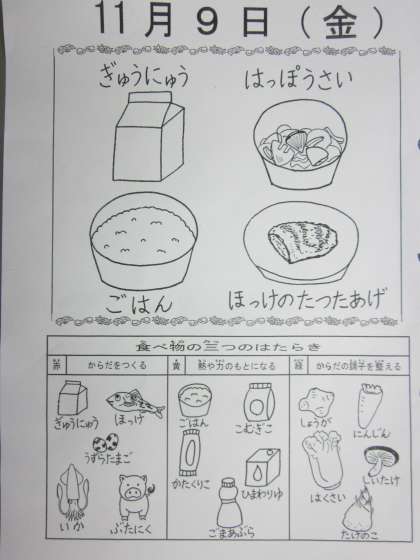 11月9日(金)
ぎゅうにゅう はっぽうさい
ごはん ほっけのたつたあげ
食べ物の三つのはたらき
赤 からだをつくる 黄 熱や力のもとになる 緑 からだの調子を整える
ぎゅうにゅう ほっけ ごはん こむぎこ しょうが にんじん
うずらたまご かたくりこ ひまわりゆ はくさい しいたけ
いか ぶたにく ごまあぶら たけのこ